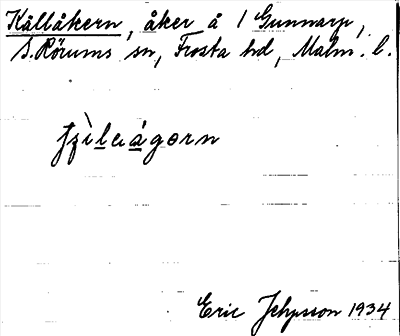 Kållåkern, åker å 1 Gunnarp,
S. Rörums sn, Frosta hd, Malm. l.
Eric Jepsson 1934